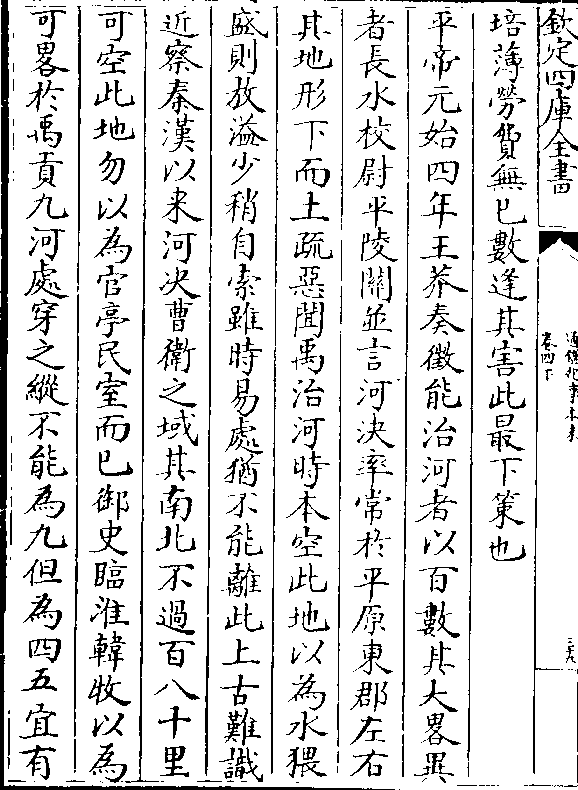 欽定四庫全書
通鑑紀事本末
卷四下
三九
培薄勞費無已數逢其害此最下策也
平帝元始四年王莽奏徵能治河者以百數其大畧異
者長水校尉平陵關並言河決率常於平原東郡左右
其地形下而土疏惡聞禹治河時本空此地以為水猥
盛則放溢少稍自索雖時易處猶不能離此上古難識
近察秦漢以来河决曹衛之域其南北不過百八十里
可空此地勿以為官亭民室而已御史臨淮韓牧以為
可畧於禹貢九河處穿之縱不能為九但為四五宜有